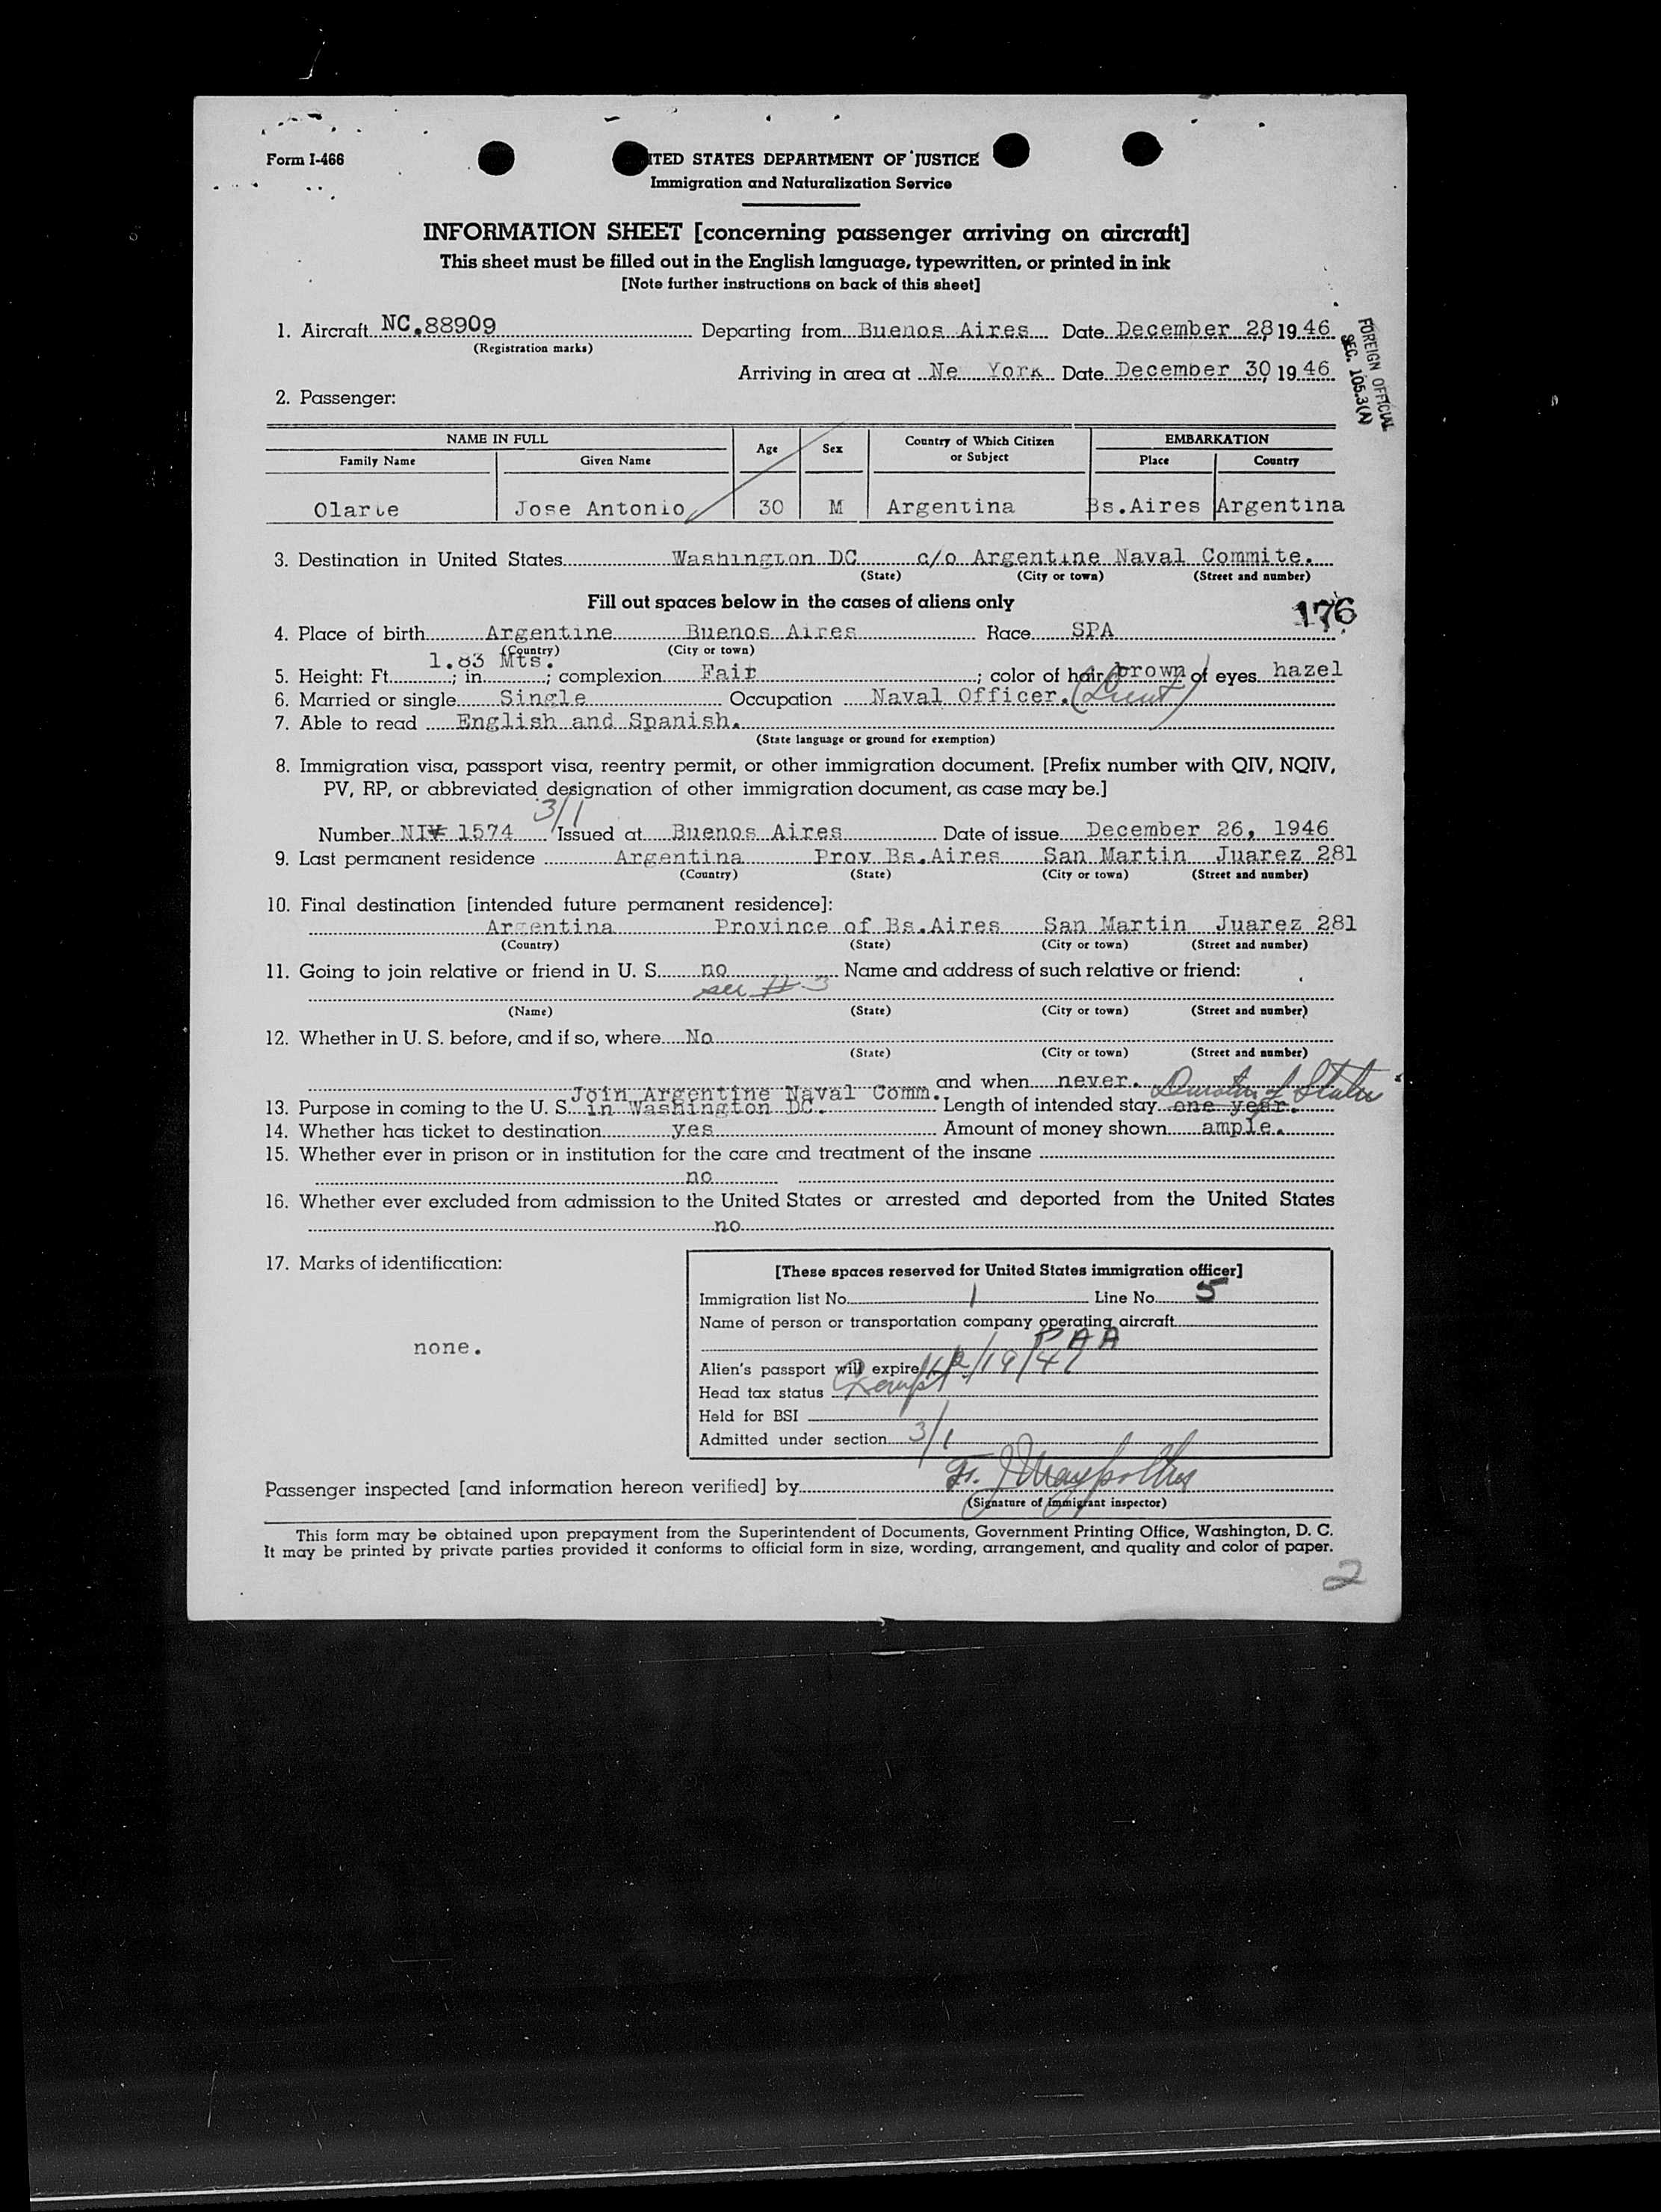 Form I-466
ITED STATES DEPARTMENT OF JUSTICE
Immigration and Naturalization Service
INFORMATION SHEET [concerning passenger arriving on aircraft]
This sheet must be filled out in the English language, typewritten, or printed in ink
[Note further instructions on back of this sheet]
1. Aircraft NC.88909 Departing from Buenos Aires Date December 28, 1946
(Registration marks)
FOREIGN OFFICIAL
SEC. 105.3(A)
Arriving in area at Ne York Date December 30, 1946
2. Passenger:
NAME IN FULL Age Sex Country of Which Citizen or Subject EMBARKATION
Family Name Given Name Place Country
Olarte Jose Antonio 30 M Argentina Bs.Aires Argentina
3. Destination in United States Washington DC c/o Argentine Naval Commite.
(State) (City or town) (Street and number)
Fill out spaces below in the cases of aliens only
176
4. Place of birth Argentine Buenos Aires Race SPA
(Country) (City or town)
1.83 Mts.
5. Height: Ft. ; in. ; complexion Fair ; color of hair brown of eyes hazel
6. Married or single Single Occupation Naval Officer. (Lieut)
7. Able to read English and Spanish.
(State language or ground for exemption)
8. Immigration visa, passport visa, reentry permit, or other immigration document. [Prefix number with QIV, NQIV,
PV, RP, or abbreviated designation of other immigration document, as case may be.]
3/1
Number NIV 1574 Issued at Buenos Aires Date of issue December 26, 1946
9. Last permanent residence Argentina Prov Bs.Aires San Martin Juarez 281
(Country) (State) (City or town) (Street and number)
10. Final destination [intended future permanent residence]:
Argentina Province of Bs.Aires San Martin Juarez 281
(Country) (State) (City or town) (Street and number)
11. Going to join relative or friend in U. S. no Name and address of such relative or friend:
see # 3
(Name) (State) (City or town) (Street and number)
12. Whether in U. S. before, and if so, where No
(State) (City or town) (Street and number)
and when never. Duration of Status
Join Argentine Naval Comm.
13. Purpose in coming to the U. S. in Washington DC. Length of intended stay one year.
14. Whether has ticket to destination yes Amount of money shown ample.
15. Whether ever in prison or in institution for the care and treatment of the insane
no
16. Whether ever excluded from admission to the United States or arrested and deported from the United States
no
17. Marks of identification:
none.
[These spaces reserved for United States immigration officer]
Immigration list No. 1 Line No. 5
Name of person or transportation company operating aircraft
PAA
Alien's passport will expire 12/19/47
Head tax status Exempt
Held for BSI
Admitted under section 3/1
Passenger inspected [and information hereon verified] by
(Signature of Immigrant inspector)
This form may be obtained upon prepayment from the Superintendent of Documents, Government Printing Office, Washington, D. C.
It may be printed by private parties provided it conforms to official form in size, wording, arrangement, and quality and color of paper.
2